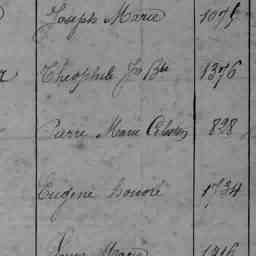 Joseph Marie 1075
Théophile Jn Bte 1376
Pierre Marie Célestin 828
Eugène honoré 1734
Marie 1316